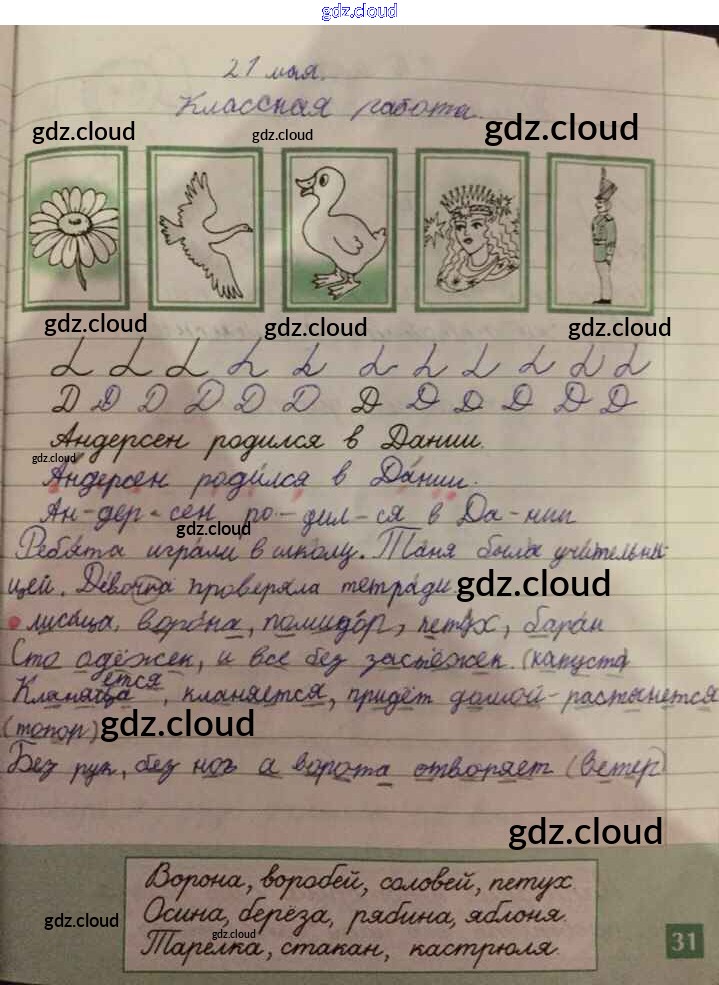 gdz.cloud
21 мая.
Классная работа.
gdz.cloud gdz.cloud gdz.cloud
gdz.cloud gdz.cloud gdz.cloud
Д Д Д Д Д Д Д Д Д Д
Андерсен родился в Дании.
gdz.cloud
Андерсен родился в Дании.
Ан-дер-сен ро-дил-ся в Да-нии
gdz.cloud
Ребята играли в школу. Таня была учительни-
цей. Девочка проверяла тетради.
gdz.cloud
лисица, ворона, помидор, петух, баран
Сто одёжек, и все без застёжек. (капуста)
ется
Кланяица, кланяется, придёт домой - растянется
(топор)
gdz.cloud
Без рук, без ног а ворота отворяет (ветер)
gdz.cloud
Ворона, воробей, соловей, петух.
Осина, берёза, рябина, яблоня.
Тарелка, стакан, кастрюля.
gdz.cloud gdz.cloud
31